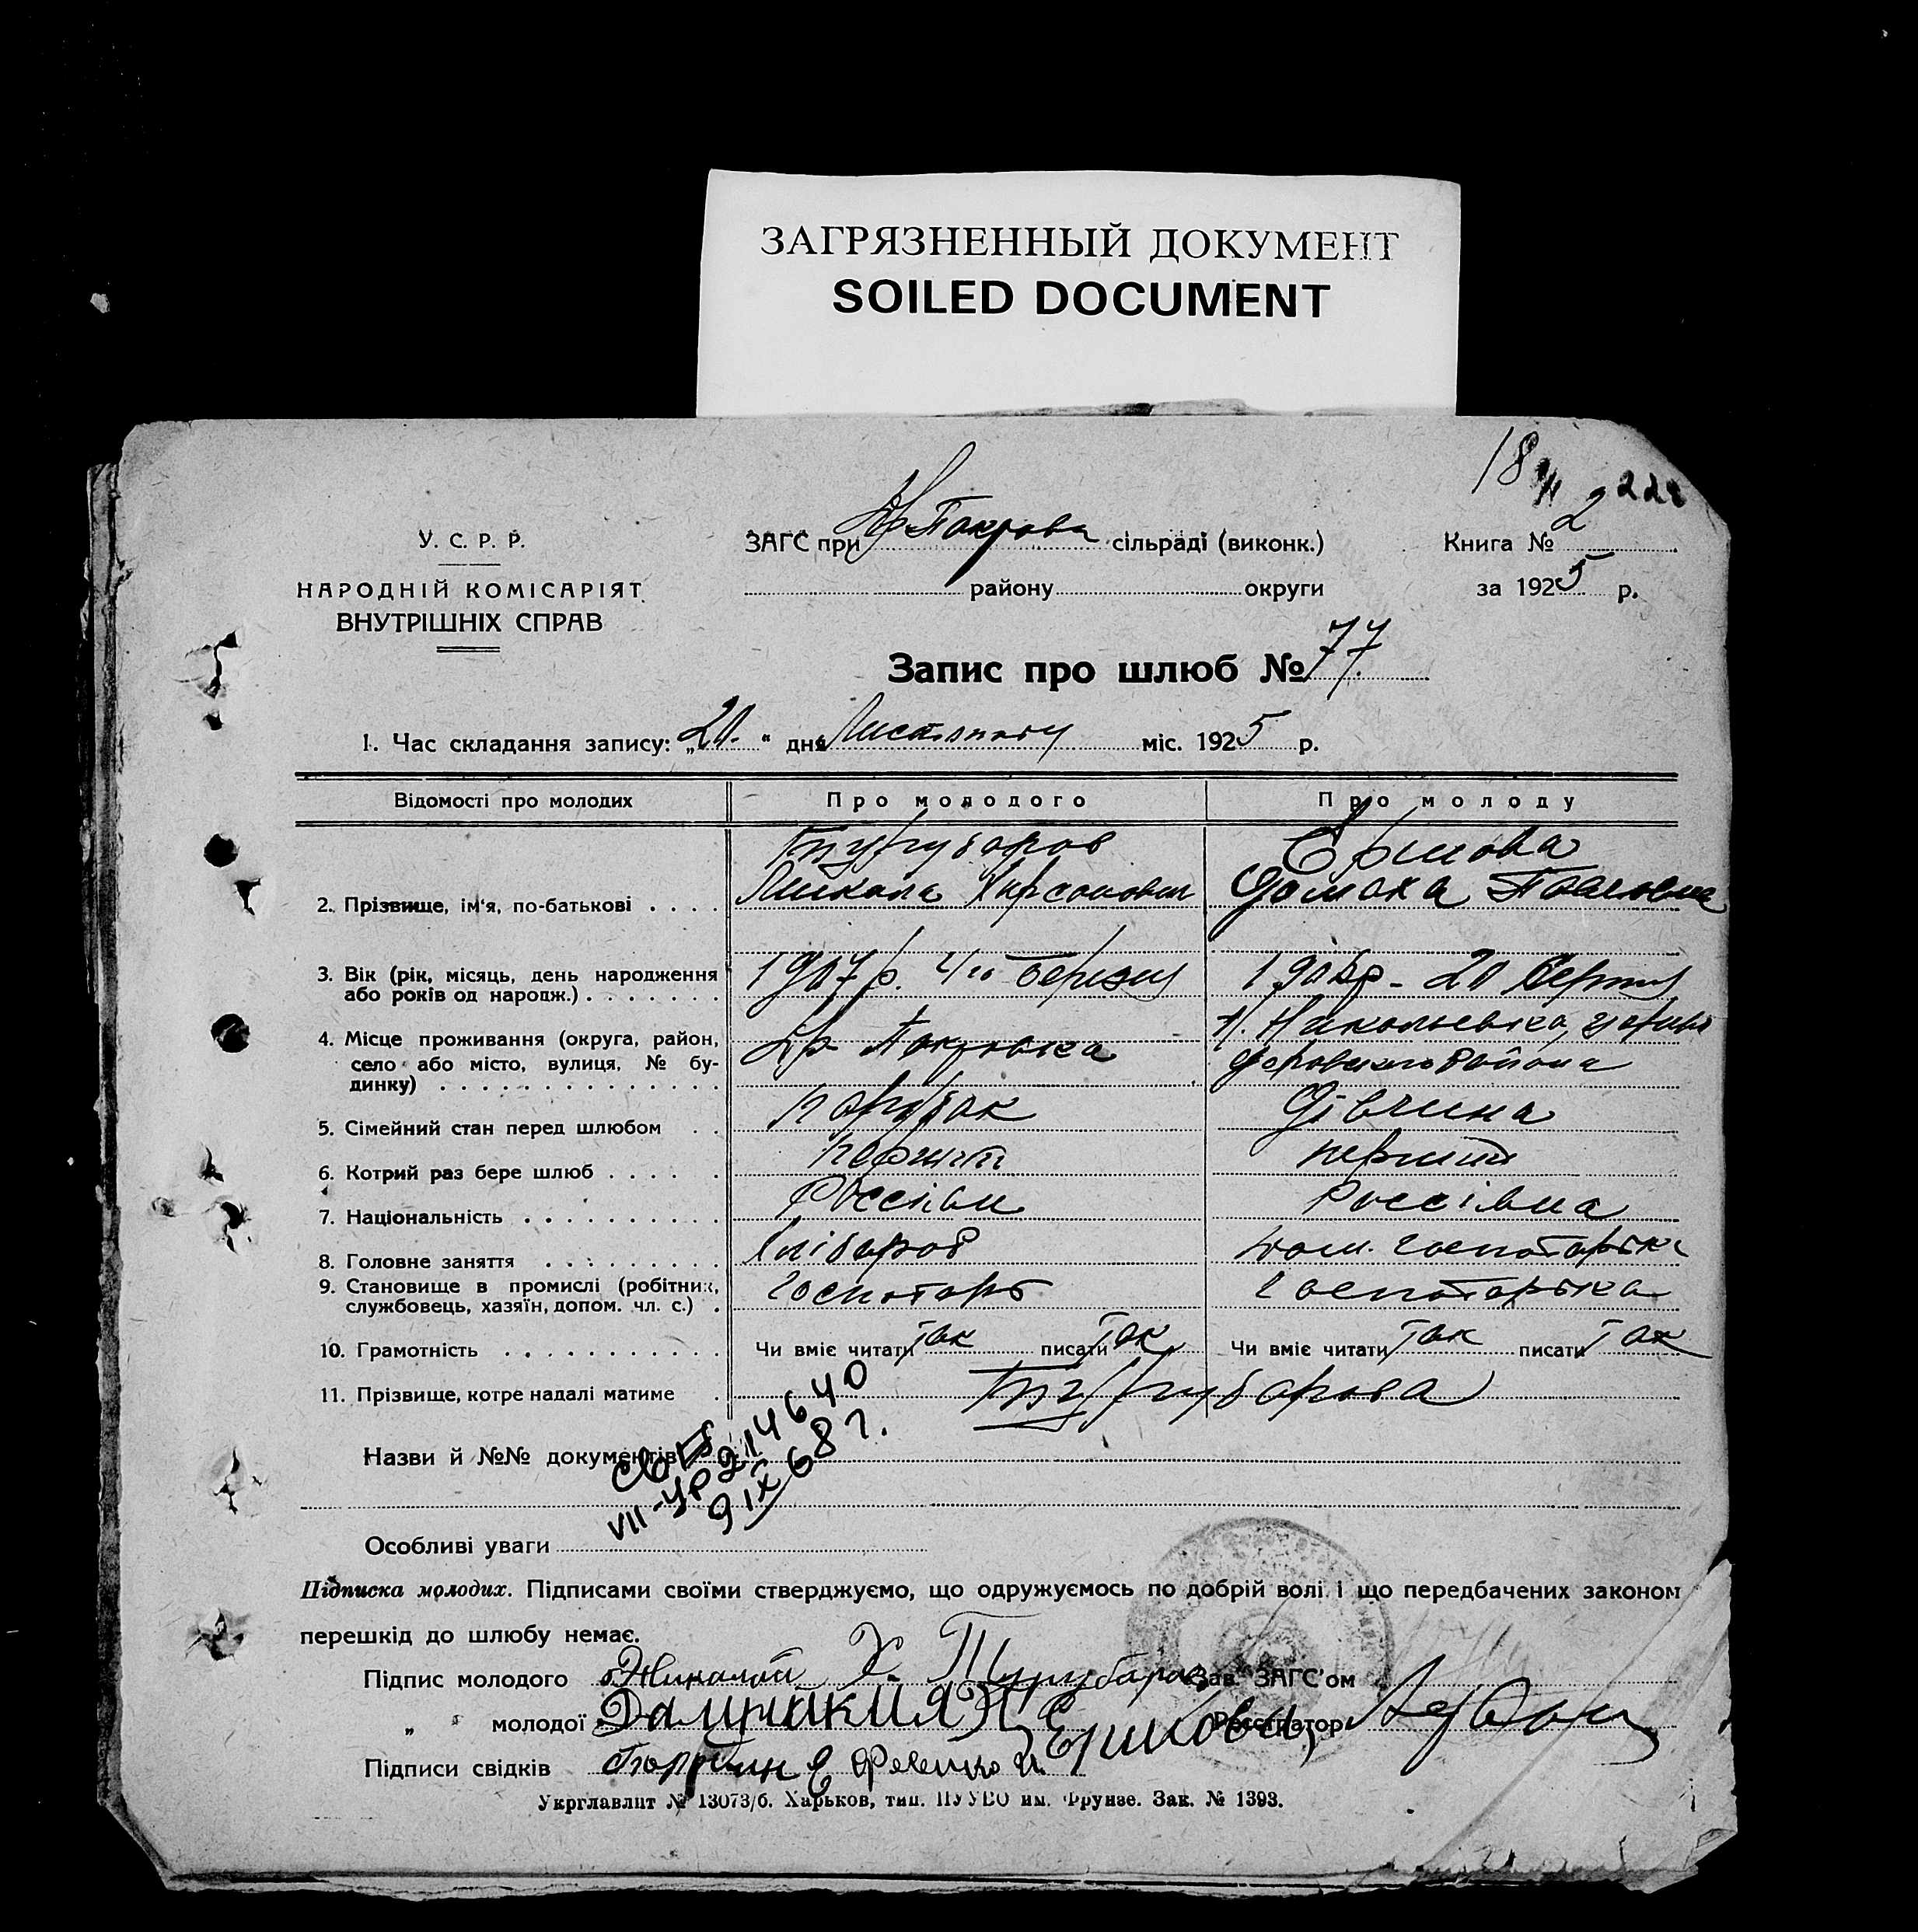 ЗАГРЯЗНЕННЫЙ ДОКУМЕНТ
SOILED DOCUMENT
18
У. С. Р. Р.
НАРОДНІЙ КОМІСАРІЯТ
ВНУТРІШНІХ СПРАВ
ЗАГС при сільраді (виконк.)
району округи
Книга № 2
за 1925 р.
Запис про шлюб № 77
1. Час складання запису: „20. “ дня Листопаду міс. 1925 р.
Відомості про молодих Про молодого Про молоду
2. Прізвище, ім'я, по-батькові . . . . Турубаров Микола Єршова Домаха Павловна
3. Вік (рік, місяць, день народження або років од народж.) . . . . . . . 1907 р. березня 20
4. Місце проживання (округа, район, село або місто, вулиця, № будинку) . . . . . . . . . . . . . . Покровка
5. Сімейний стан перед шлюбом . . парубак Дівчина
6. Котрий раз бере шлюб . . . . . перший перший
7. Національність . . . . . . . . . . Россіян Россіівна
8. Головне заняття . . . . . . . . Хлібороб дом. господарька
9. Становище в промислі (робітник, службовець, хазяїн, допом. чл. с.) . господарь господарька
10. Грамотність . . . . . . . . . . . Чи вміє читати так писати так Чи вміє читати так писати так
11. Прізвище, котре надалі матиме . Турубарова
Назви й №№ документів
VII-УР 214640
9 IX 68 г.
Особливі уваги
Підписка молодих. Підписами своїми стверджуємо, що одружуємось по добрій волі і що передбачених законом
перешкід до шлюбу немає.
Підпис молодого Николай Х. Турубаров Зав. ЗАГС'ом
„ „ молодої Ершова Реєстратор
Підписи свідків
Укрглавлит № 13073/б. Харьков, тип. ПУУВО им. Фрунзе. Зак. № 1393.